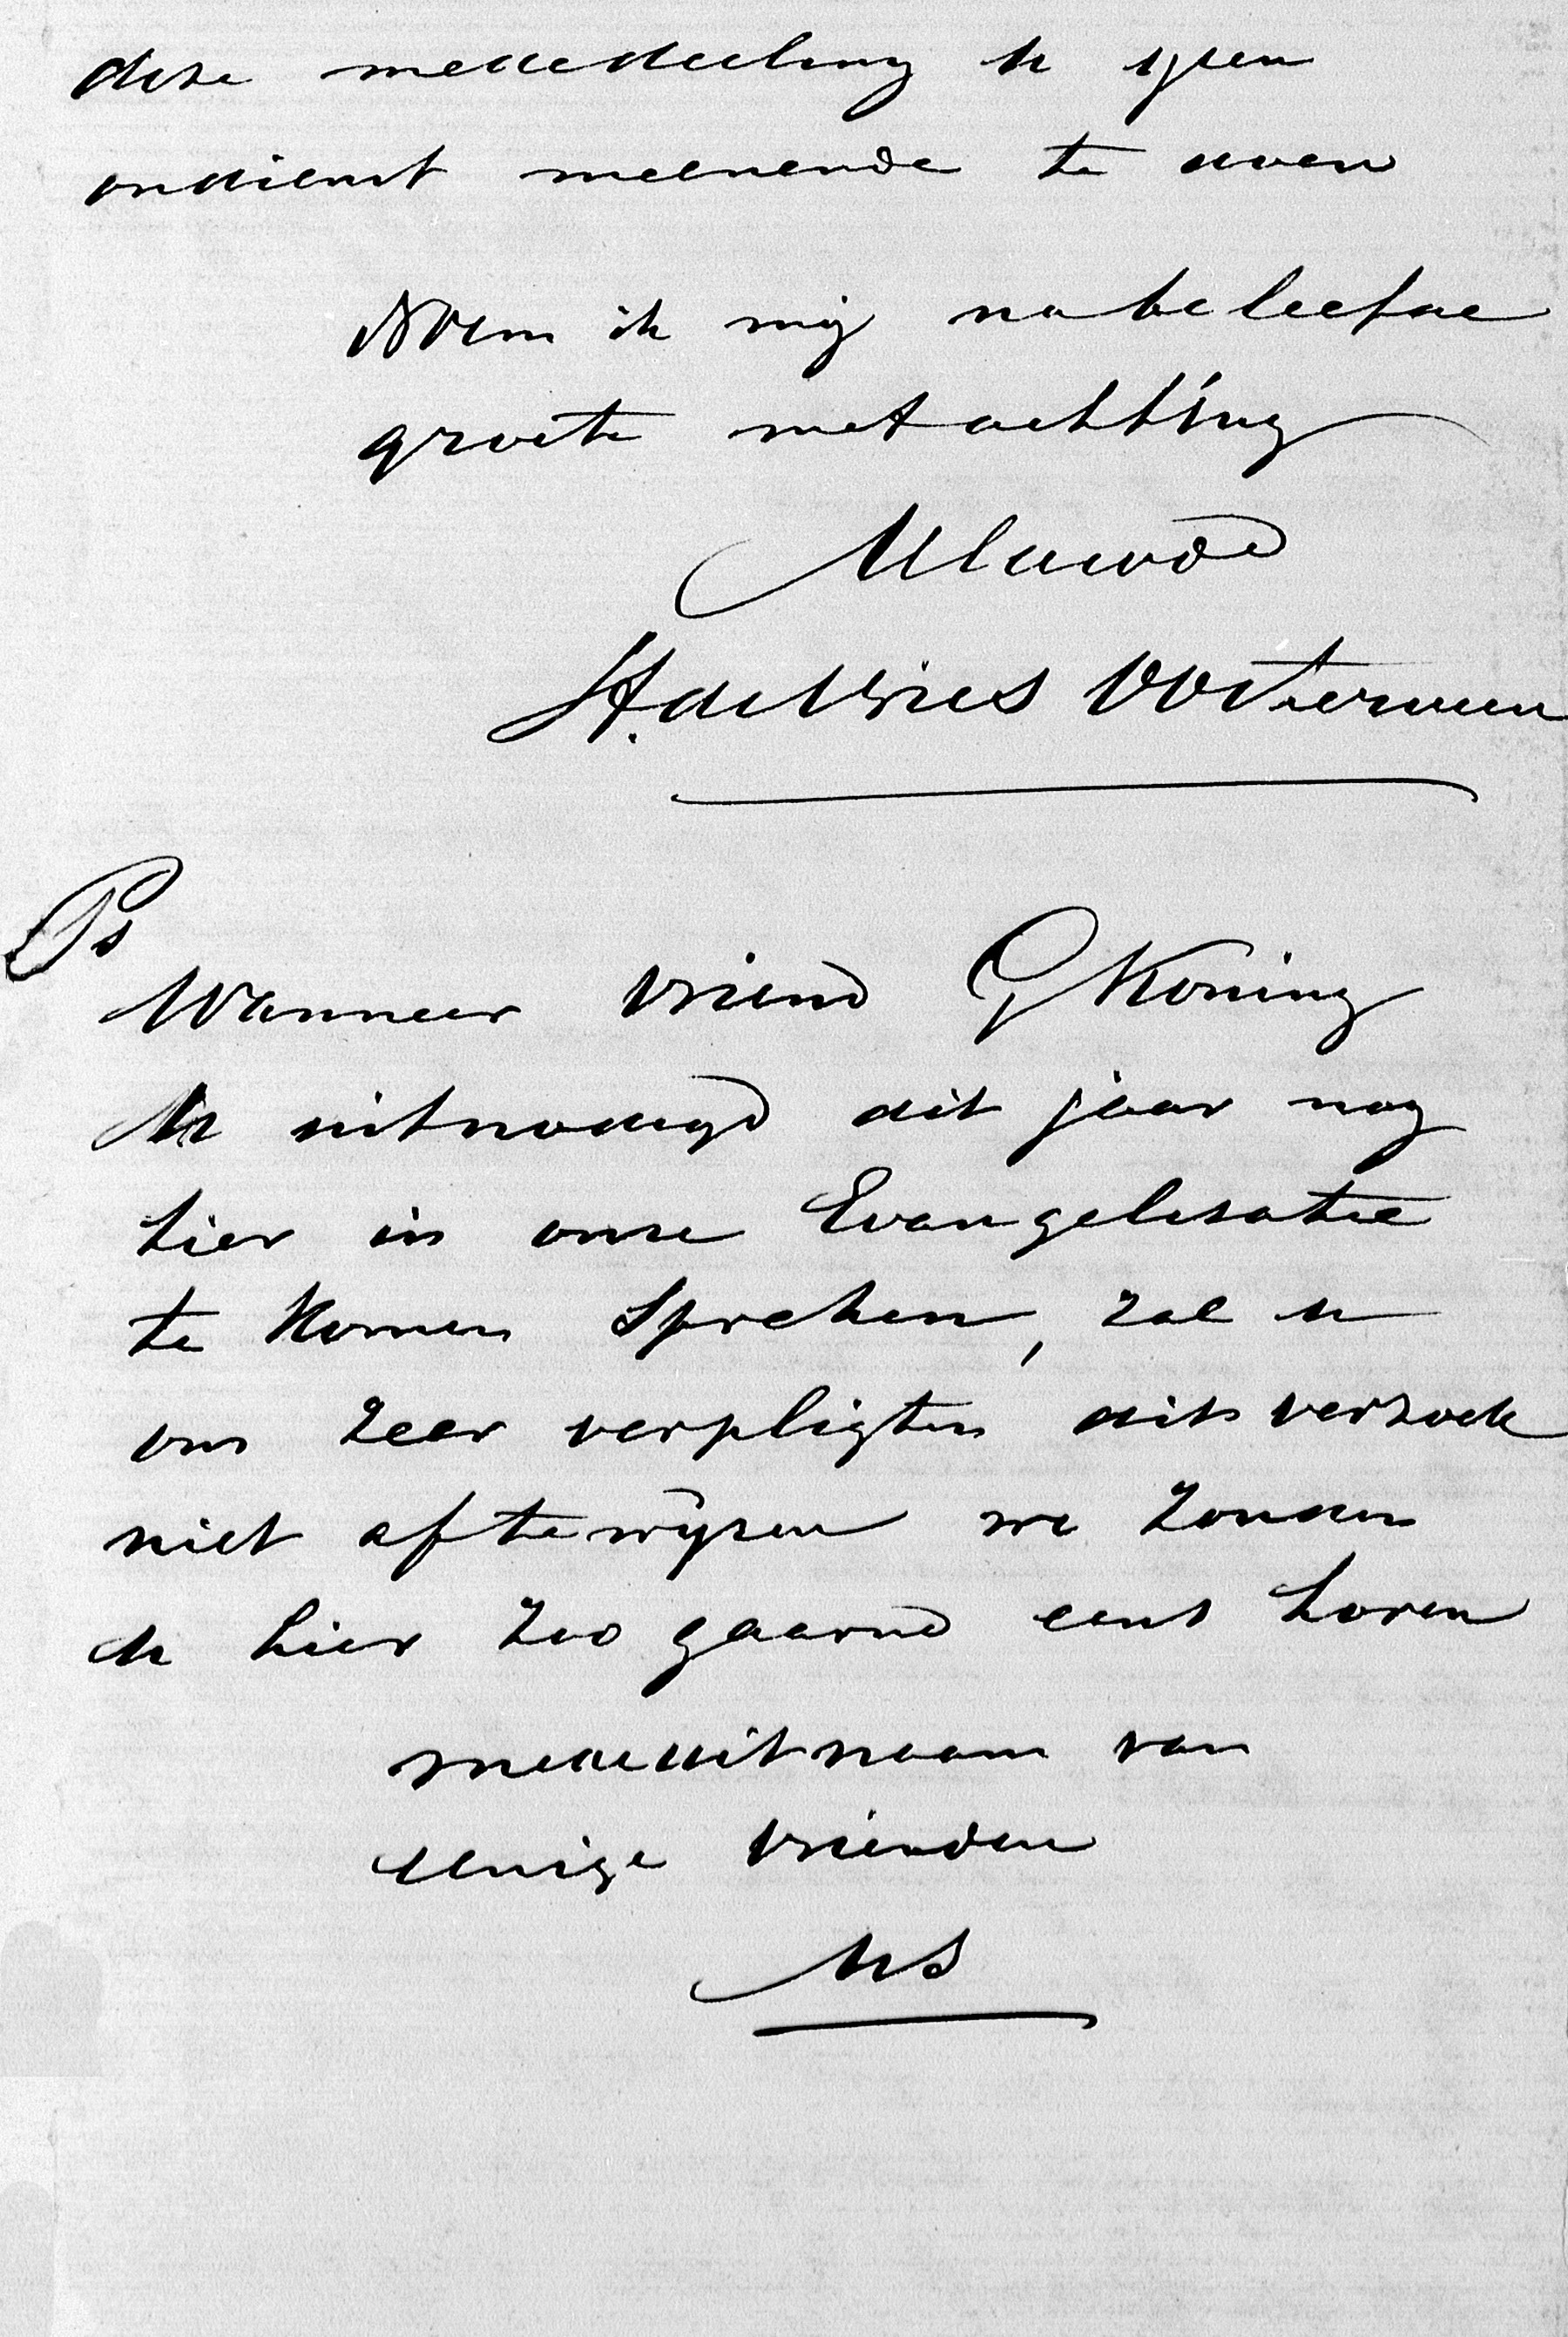 deze mededeeling u geen
ondienst meenende te doen
Noem ik mij na beleefde
groete met achting
UEdwd
H. de Vries
Ps
Wanneer vriend Koning
U uitnodigd dit jaar nog
hier in onze Evangelisatie
te komen spreken, zal u
ons zeer verpligten dit verzoek
niet af te wijzen we zouden
u hier zoo gaarne eens horen
mede uit naam van
eenige vrienden